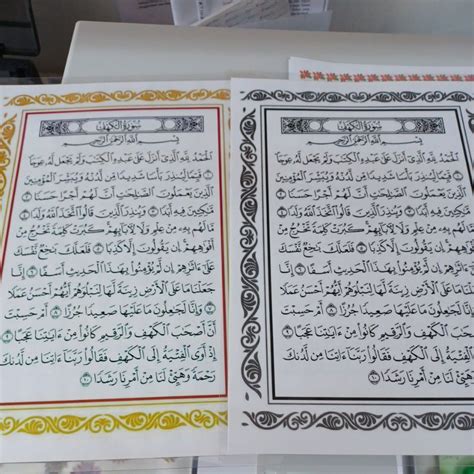 سُورَةُ الكَهْفِ
بِسْمِ اللَّهِ الرَّحْمَٰنِ الرَّحِيمِ
الْحَمْدُ لِلَّهِ الَّذِي أَنزَلَ عَلَىٰ عَبْدِهِ الْكِتَٰبَ وَلَمْ يَجْعَل لَّهُ عِوَجًا
١ قَيِّمًا لِّيُنذِرَ بَأْسًا شَدِيدًا مِّن لَّدُنْهُ وَيُبَشِّرَ الْمُؤْمِنِينَ
الَّذِينَ يَعْمَلُونَ الصَّٰلِحَٰتِ أَنَّ لَهُمْ أَجْرًا حَسَنًا ٢
مَّٰكِثِينَ فِيهِ أَبَدًا ٣ وَيُنذِرَ الَّذِينَ قَالُوا اتَّخَذَ اللَّهُ وَلَدًا ٤
مَّا لَهُم بِهِ مِنْ عِلْمٍ وَلَا لِءَابَآئِهِمْ كَبُرَتْ كَلِمَةً تَخْرُجُ مِنْ
أَفْوَٰهِهِمْ إِن يَقُولُونَ إِلَّا كَذِبًا ٥ فَلَعَلَّكَ بَٰخِعٌ نَّفْسَكَ
عَلَىٰ ءَاثَٰرِهِمْ إِن لَّمْ يُؤْمِنُوا بِهَٰذَا الْحَدِيثِ أَسَفًا ٦ إِنَّا
جَعَلْنَا مَا عَلَى الْأَرْضِ زِينَةً لَّهَا لِنَبْلُوَهُمْ أَيُّهُمْ أَحْسَنُ عَمَلًا
٧ وَإِنَّا لَجَٰعِلُونَ مَا عَلَيْهَا صَعِيدًا جُرُزًا ٨ أَمْ حَسِبْتَ
أَنَّ أَصْحَٰبَ الْكَهْفِ وَالرَّقِيمِ كَانُوا مِنْ ءَايَٰتِنَا عَجَبًا ٩
إِذْ أَوَى الْفِتْيَةُ إِلَى الْكَهْفِ فَقَالُوا رَبَّنَا ءَاتِنَا مِن لَّدُنكَ
رَحْمَةً وَهَيِّئْ لَنَا مِنْ أَمْرِنَا رَشَدًا ١٠
سُورَةُ الكَهْفِ
بِسْمِ اللَّهِ الرَّحْمَٰنِ الرَّحِيمِ
الْحَمْدُ لِلَّهِ الَّذِي أَنزَلَ عَلَىٰ عَبْدِهِ الْكِتَٰبَ وَلَمْ يَجْعَل لَّهُ عِوَجًا
١ قَيِّمًا لِّيُنذِرَ بَأْسًا شَدِيدًا مِّن لَّدُنْهُ وَيُبَشِّرَ الْمُؤْمِنِينَ
الَّذِينَ يَعْمَلُونَ الصَّٰلِحَٰتِ أَنَّ لَهُمْ أَجْرًا حَسَنًا ٢
مَّٰكِثِينَ فِيهِ أَبَدًا ٣ وَيُنذِرَ الَّذِينَ قَالُوا اتَّخَذَ اللَّهُ وَلَدًا ٤
مَّا لَهُم بِهِ مِنْ عِلْمٍ وَلَا لِءَابَآئِهِمْ كَبُرَتْ كَلِمَةً تَخْرُجُ مِنْ
أَفْوَٰهِهِمْ إِن يَقُولُونَ إِلَّا كَذِبًا ٥ فَلَعَلَّكَ بَٰخِعٌ نَّفْسَكَ
عَلَىٰ ءَاثَٰرِهِمْ إِن لَّمْ يُؤْمِنُوا بِهَٰذَا الْحَدِيثِ أَسَفًا ٦ إِنَّا
جَعَلْنَا مَا عَلَى الْأَرْضِ زِينَةً لَّهَا لِنَبْلُوَهُمْ أَيُّهُمْ أَحْسَنُ عَمَلًا
٧ وَإِنَّا لَجَٰعِلُونَ مَا عَلَيْهَا صَعِيدًا جُرُزًا ٨ أَمْ حَسِبْتَ
أَنَّ أَصْحَٰبَ الْكَهْفِ وَالرَّقِيمِ كَانُوا مِنْ ءَايَٰتِنَا عَجَبًا ٩
إِذْ أَوَى الْفِتْيَةُ إِلَى الْكَهْفِ فَقَالُوا رَبَّنَا ءَاتِنَا مِن لَّدُنكَ
رَحْمَةً وَهَيِّئْ لَنَا مِنْ أَمْرِنَا رَشَدًا ١٠